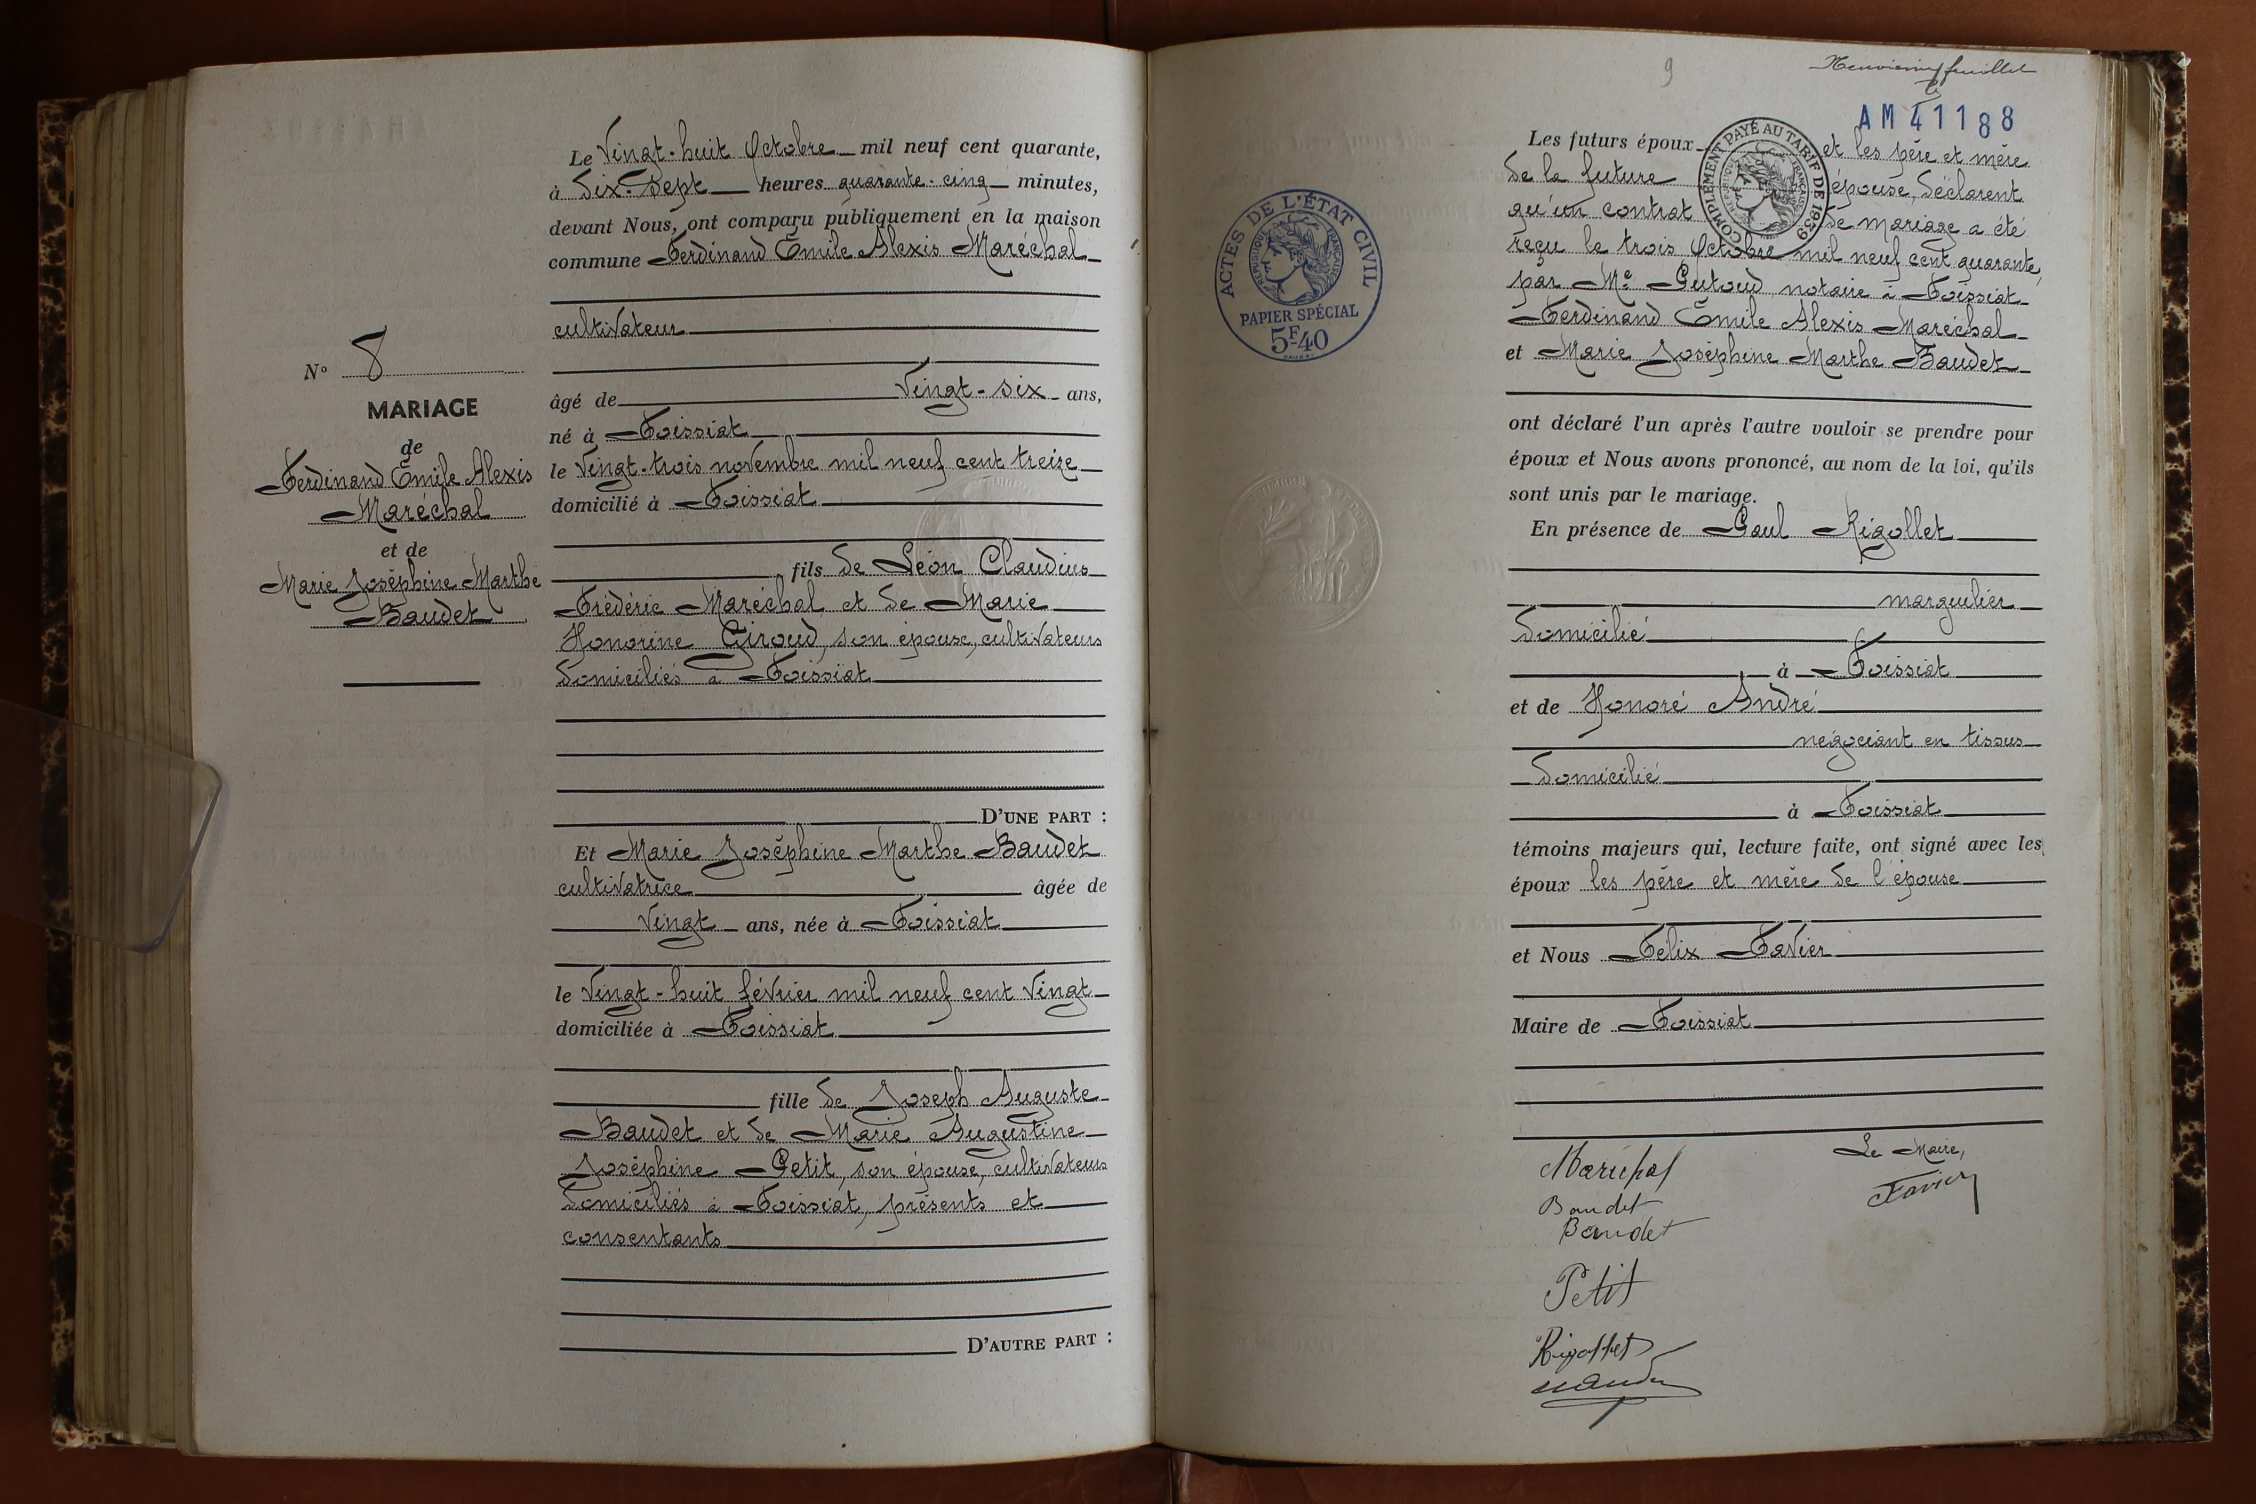 N° 8
MARIAGE
de
Ferdinand Emile Alexis
Maréchal
et de
Marie Joséphine Marthe
Baudet
Le Vingt-huit Octobre mil neuf cent quarante,
à dix-sept heures quarante-cinq minutes,
devant Nous, ont comparu publiquement en la maison
commune Ferdinand Emile Alexis Maréchal
cultivateur
âgé de Vingt-six ans,
né à Foissiat
le Vingt-trois novembre mil neuf cent treize
domicilié à Foissiat
fils de Léon Claudius
Frédéric Maréchal et de Marie
Honorine Giroud, son épouse, cultivateurs
domiciliés à Foissiat
D'UNE PART :
Et Marie Joséphine Marthe Baudet
cultivatrice âgée de
Vingt ans, née à Foissiat
le Vingt-huit février mil neuf cent Vingt
domiciliée à Foissiat
fille de Joseph Auguste
Baudet et de Marie Augustine
Joséphine Petit, son épouse, cultivateurs
domiciliés à Foissiat, présents et
consentants
D'AUTRE PART :
9
Neuvième feuillet
AM 41188
ACTES DE L'ÉTAT CIVIL
RÉPUBLIQUE FRANÇAISE
PAPIER SPÉCIAL
5F.40
COMPLÉMENT PAYÉ AU TARIF DE 1939
RÉPUBLIQUE FRANÇAISE
Les futurs époux et les père et mère
de la future épouse, déclarent
qu'un contrat de mariage a été
reçu le trois Octobre mil neuf cent quarante,
par Me Putoud, notaire à Foissiat
Ferdinand Emile Alexis Maréchal
et Marie Joséphine Marthe Baudet
ont déclaré l'un après l'autre vouloir se prendre pour
époux et Nous avons prononcé, au nom de la loi, qu'ils
sont unis par le mariage.
En présence de Paul Rigollet
marguelier
domicilié
à Foissiat
et de Honoré André
négociant en tissus
domicilié
à Foissiat
témoins majeurs qui, lecture faite, ont signé avec les
époux les père et mère de l'épouse
et Nous Félix Favier
Maire de Foissiat
Maréchal
Baudet
Baudet
Petit
Rigollet
Le Maire,
Favier